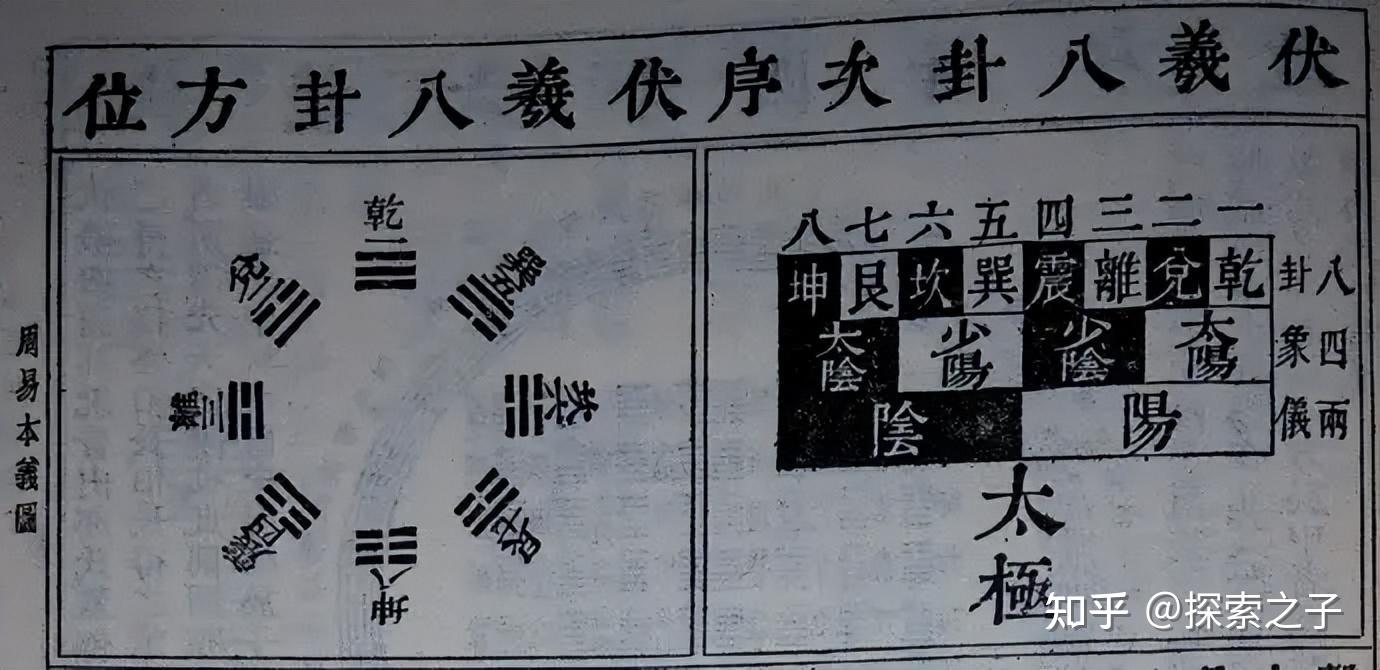 伏羲八卦次序
一二三四五六七八
八卦 乾兌離震巽坎艮坤
四象 太陽 少陰 少陽 太陰
兩儀 陽 陰
太極
伏羲八卦方位
乾一
兌二
離三
震四
巽五
坎六
艮七
坤八
周易本義圖
知乎 @探索之子